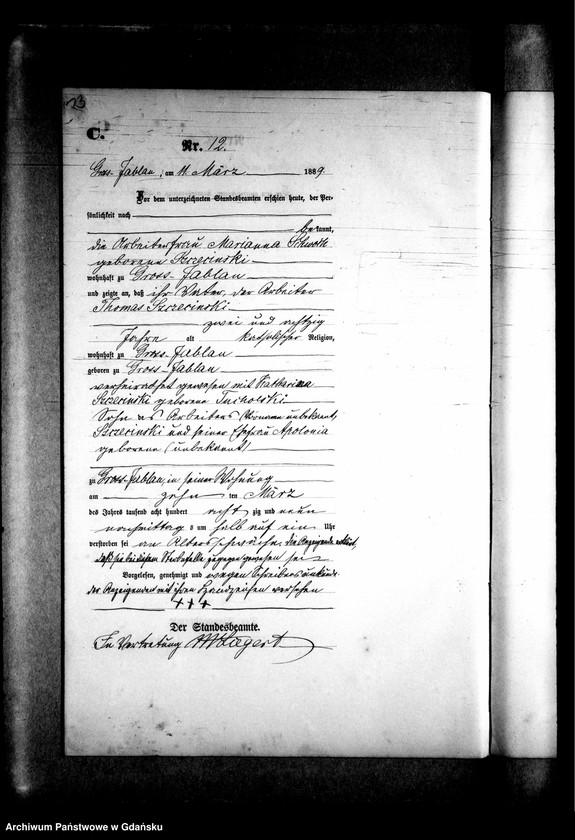 23
C.
Nr. 12.
Gross-Jablau, am 11. März 1889.
Vor dem unterzeichneten Standesbeamten erschien heute, der Per-
sönlichkeit nach
bekannt,
die Arbeiterfrau Marianna
geborene Szczecinski
wohnhaft zu Gross-Jablau
und zeigte an, daß ihr Vater, der Arbeiter
Thomas Szczecinski
zwei und achtzig
Jahre alt katholischer Religion,
wohnhaft zu Gross-Jablau
geboren zu Gross-Jablau
verheirathet gewesen mit Katharina
Szczecinski geborene Tucholski
Sohn des Arbeiters (Vorname unbekannt)
Szczecinski und seiner Ehefrau Apolonia
geborene (unbekannt)
zu Gross-Jablau, in seiner Wohnung
am zehn ten März
des Jahres tausend acht hundert acht zig und neun
nachmittag s um halb auf ein Uhr
verstorben sei an Altersschwäche. die Anzeigende erklärt,
daß sie bei diesem Sterbefalle zugegen gewesen sei
Vorgelesen, genehmigt und wegen Schreibensunkunde
der Anzeigenden mit ihren Handzeichen versehen
+++
Der Standesbeamte.
In Vertretung
Archiwum Państwowe w Gdańsku